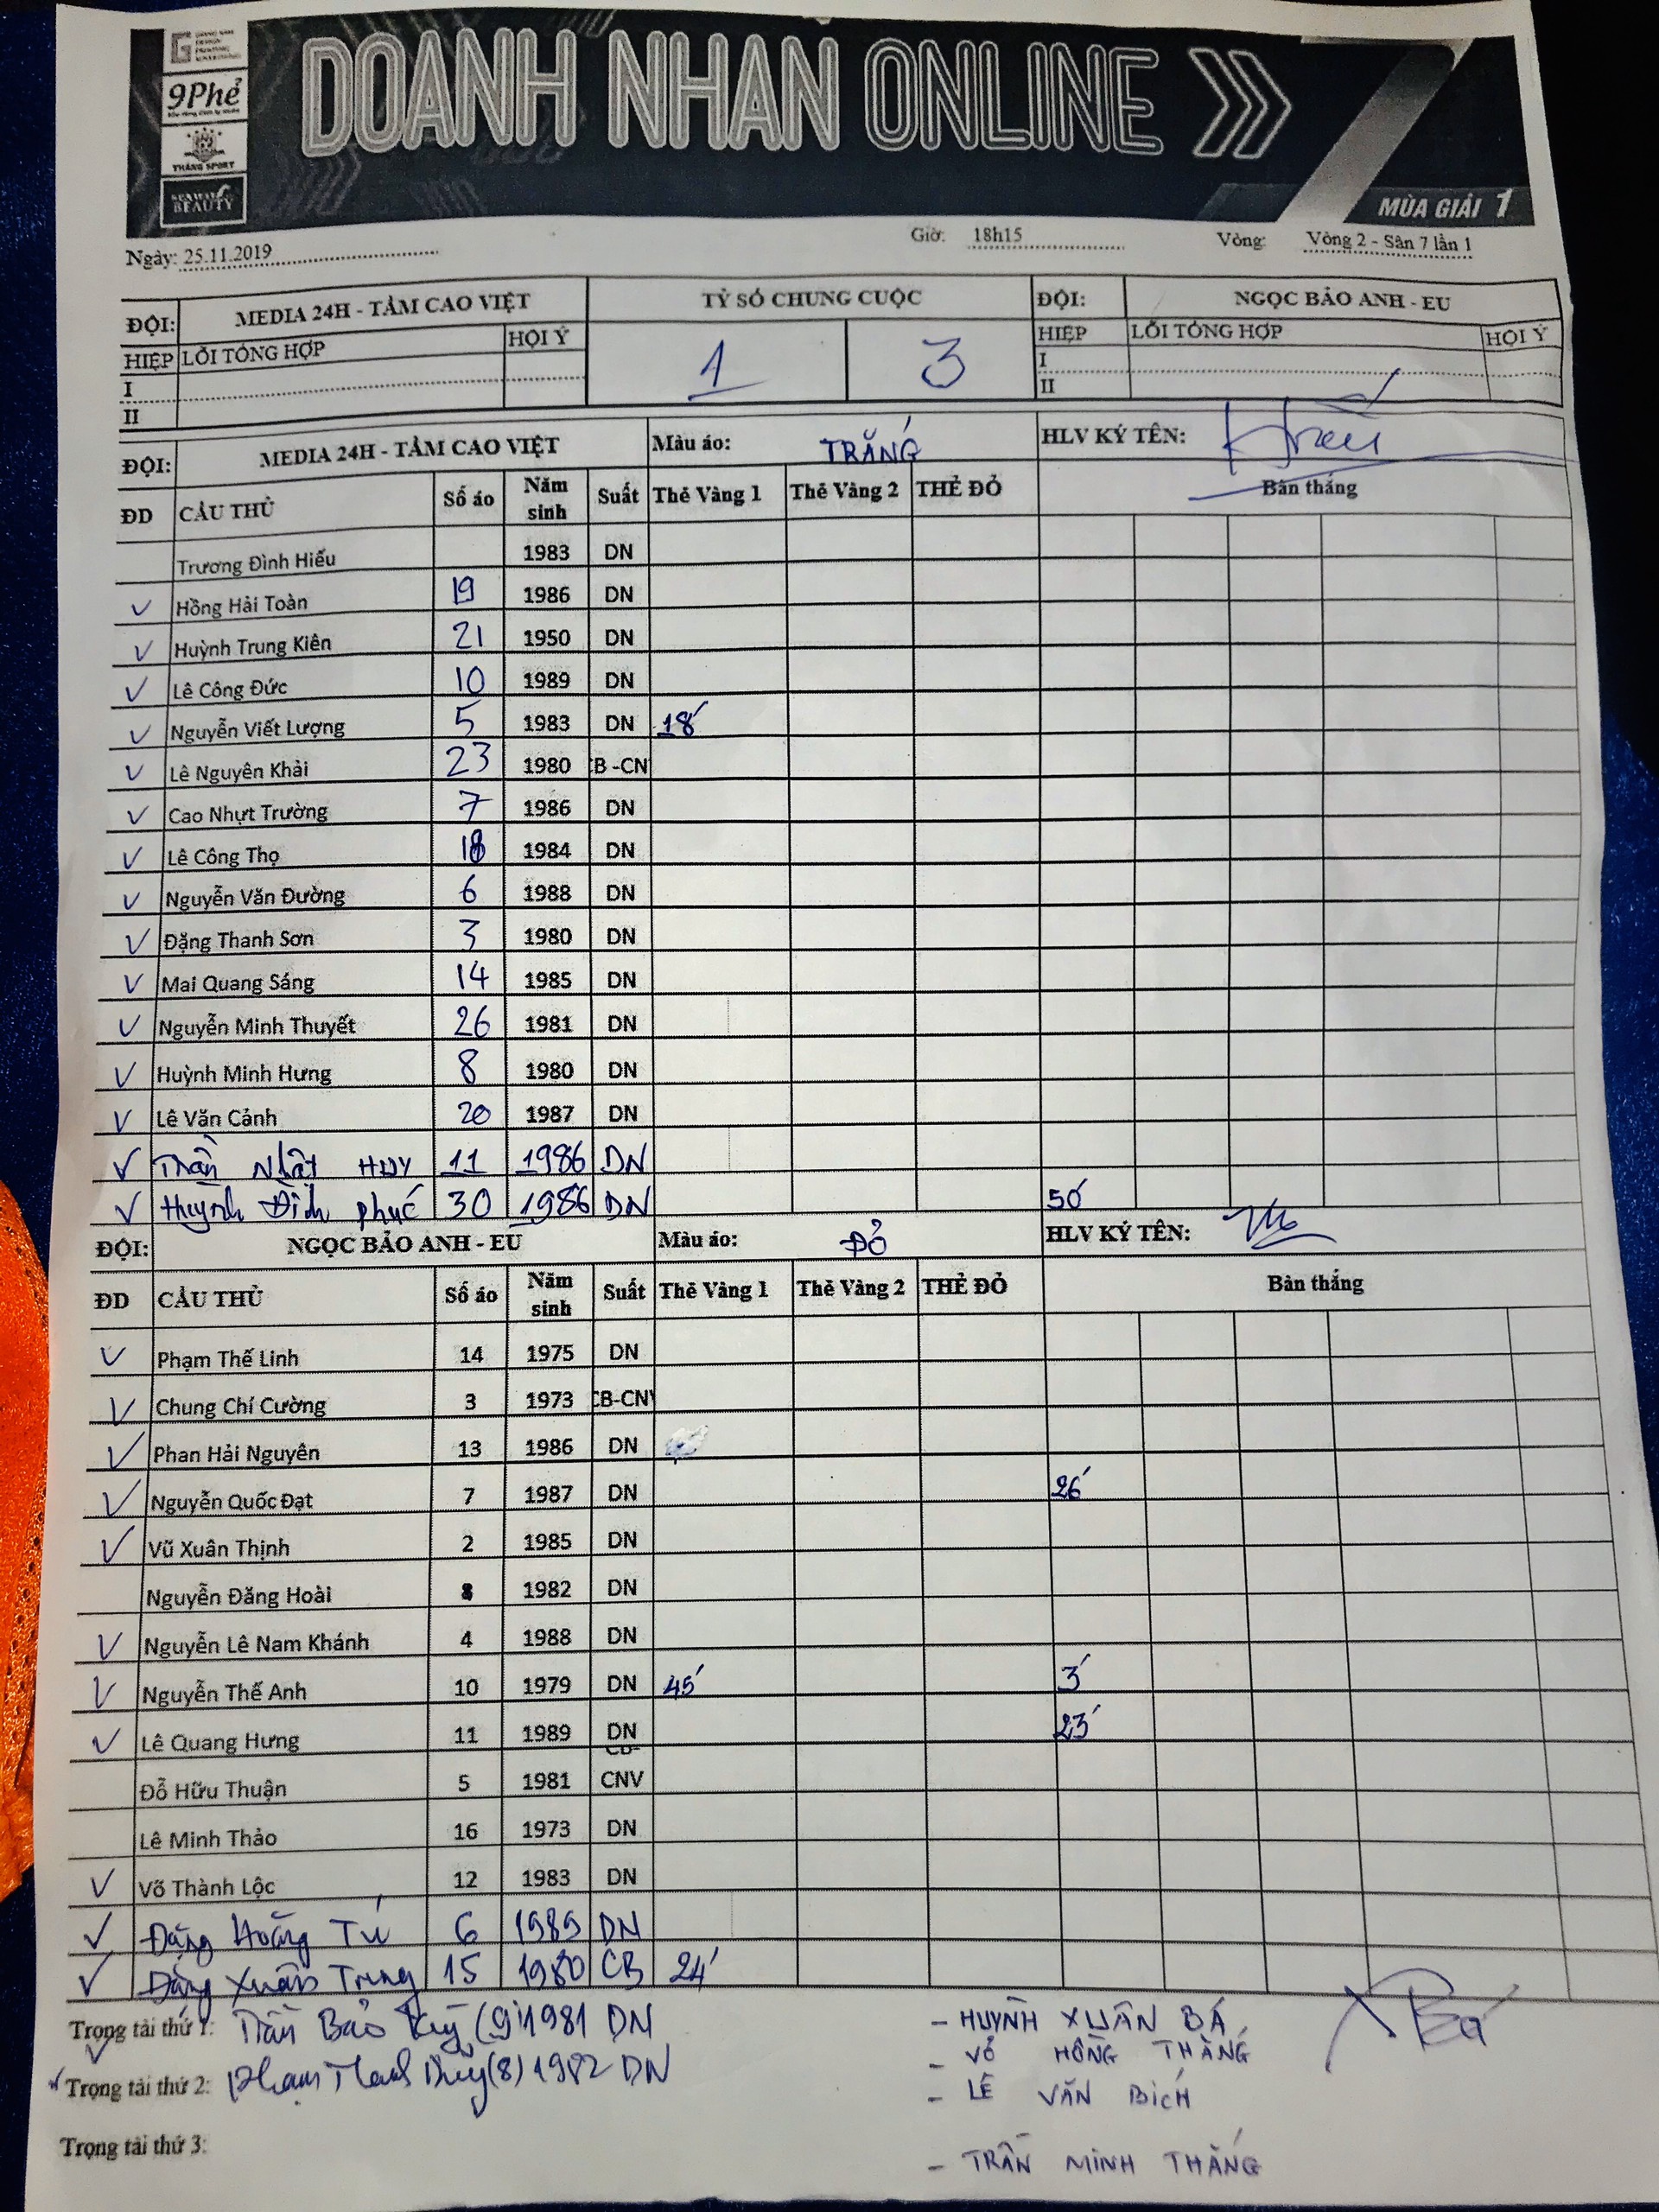 9Phẻ
THẮNG SPORT
BEAUTY
DOANH NHAN ONLINE
MÙA GIẢI 1
Ngày: 25.11.2019 Giờ: 18h15 Vòng: Vòng 2 - Sân 7 lần 1
ĐỘI: MEDIA 24H - TẦM CAO VIỆT TỶ SỐ CHUNG CUỘC ĐỘI: NGỌC BẢO ANH - EU
HIỆP LỖI TỔNG HỢP HỘI Ý 1 3 HIỆP LỖI TỔNG HỢP HỘI Ý
I I
II II
ĐỘI: MEDIA 24H - TẦM CAO VIỆT Màu áo: TRẮNG HLV KÝ TÊN:
ĐD CẦU THỦ Số áo Năm sinh Suất Thẻ Vàng 1 Thẻ Vàng 2 THẺ ĐỎ Bàn thắng
Trương Đình Hiếu 1983 DN
Hồng Hải Toàn 19 1986 DN
Huỳnh Trung Kiên 21 1950 DN
Lê Công Đức 10 1989 DN
Nguyễn Viết Lượng 5 1983 DN 18'
Lê Nguyên Khải 23 1980 CB -CN
Cao Nhựt Trường 7 1986 DN
Lê Công Thọ 18 1984 DN
Nguyễn Văn Đường 6 1988 DN
Đặng Thanh Sơn 3 1980 DN
Mai Quang Sáng 14 1985 DN
Nguyễn Minh Thuyết 26 1981 DN
Huỳnh Minh Hưng 8 1980 DN
Lê Văn Cảnh 20 1987 DN
Trần Nhật HUY 11 1986 DN
Huỳnh Đình Phúc 30 1986 DN 50'
ĐỘI: NGỌC BẢO ANH - EU Màu áo: ĐỎ HLV KÝ TÊN:
ĐD CẦU THỦ Số áo Năm sinh Suất Thẻ Vàng 1 Thẻ Vàng 2 THẺ ĐỎ Bàn thắng
Phạm Thế Linh 14 1975 DN
Chung Chí Cường 3 1973 CB-CNV
Phan Hải Nguyên 13 1986 DN
Nguyễn Quốc Đạt 7 1987 DN 26'
Vũ Xuân Thịnh 2 1985 DN
Nguyễn Đăng Hoài 8 1982 DN
Nguyễn Lê Nam Khánh 4 1988 DN
Nguyễn Thế Anh 10 1979 DN 45' 3'
Lê Quang Hưng 11 1989 DN 23'
Đỗ Hữu Thuận 5 1981 CB-CNV
Lê Minh Thảo 16 1973 DN
Võ Thành Lộc 12 1983 DN
Đặng Hoàng Tú 6 1989 DN
Đặng Xuân Trung 15 1980 CB 24'
Trọng tài thứ 1: Trần Bảo (9) 1981 DN - HUỲNH XUÂN BÁ
- VÕ HỒNG THẮNG
Trọng tài thứ 2: Phạm (8) 1982 DN - LÊ VĂN BÍCH
Trọng tài thứ 3: - TRẦN MINH THẮNG